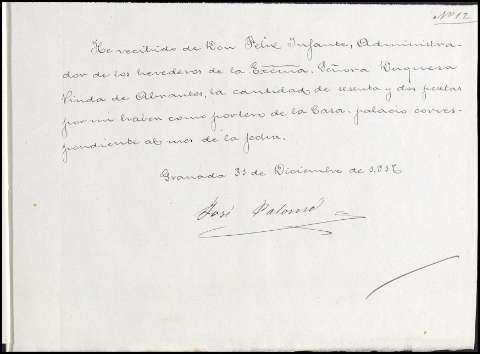 Nº 12
He recibido de Don Felix Infante, Administra-
dor de los herederos de la Excma. Señora Duquesa
Viuda de Abrantes, la cantidad de sesenta y dos pesetas
por mi haber como portero de la Casa-palacio corres-
pondiente al mes de la fecha.
Granada 31 de Diciembre de
José Palomó